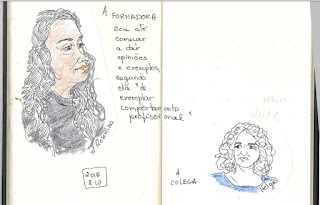 A FORMADORA
Boa até
começar
a dar
opiniões
e exemplos,
segundo
ela "de
exemplar
comportamento
profissional"
2015
A
COLEGA